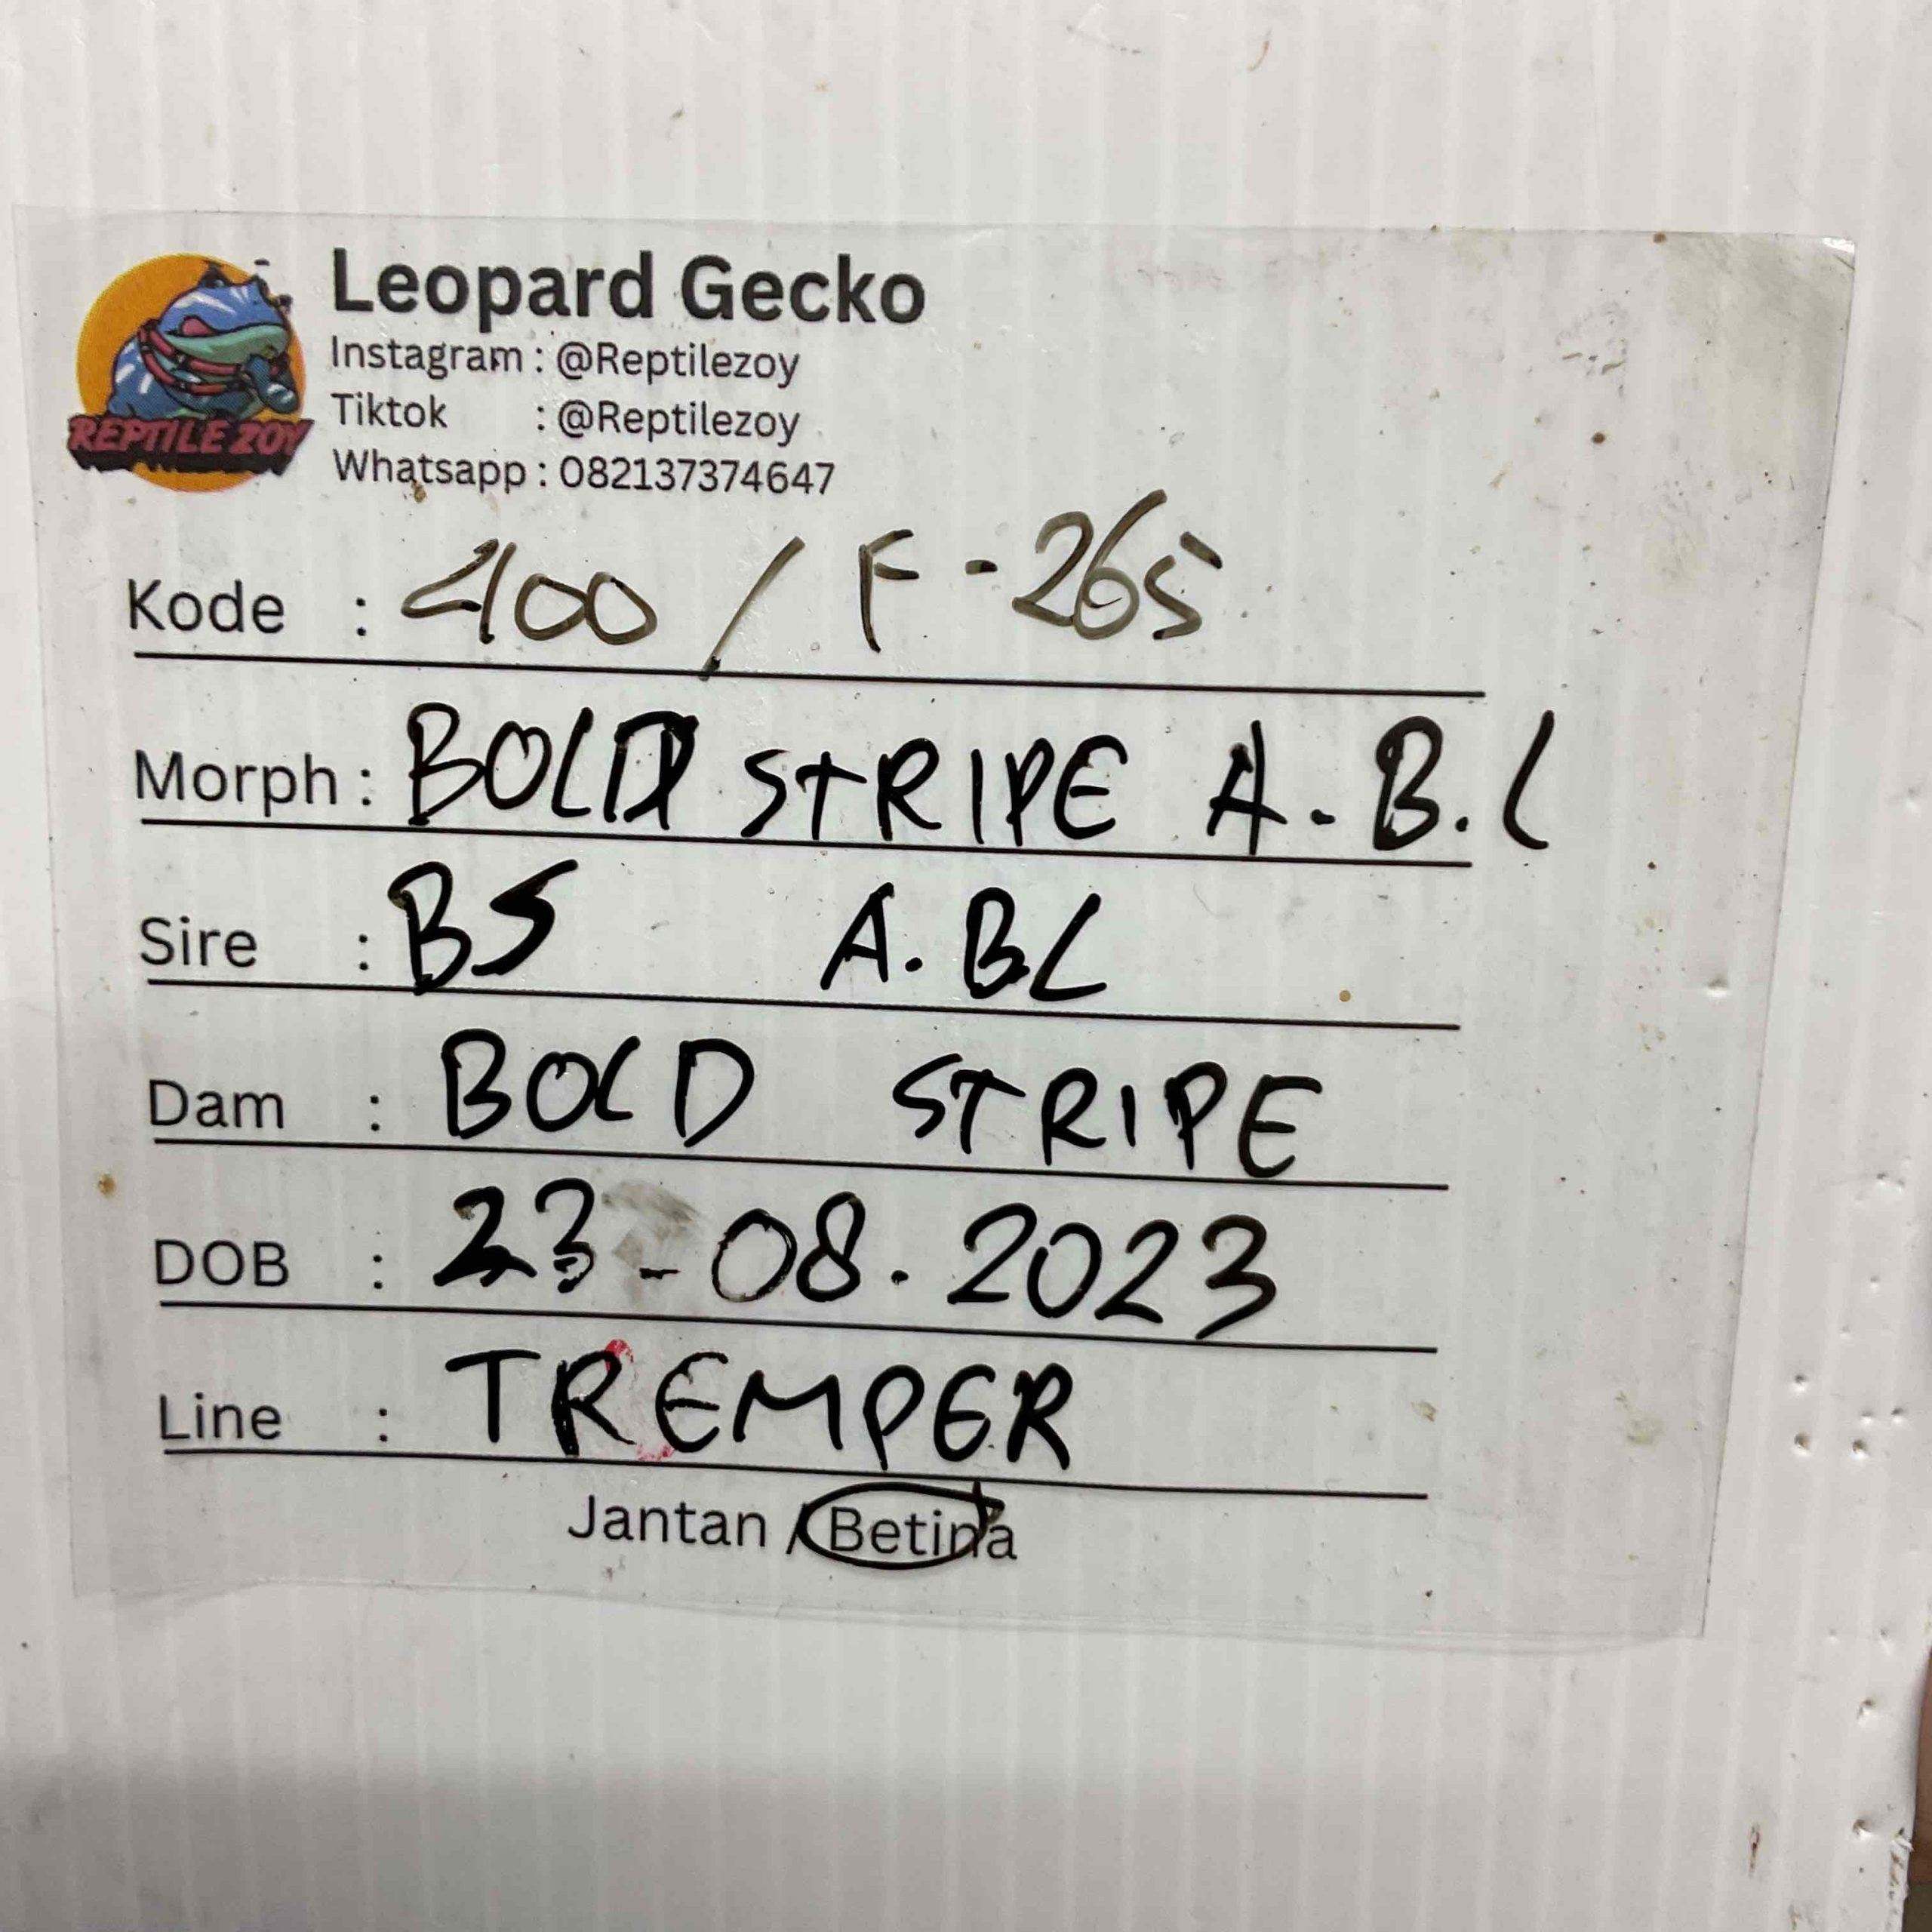 Leopard Gecko
Instagram : @Reptilezoy
Tiktok : @Reptilezoy
Whatsapp : 082137374647
REPTILE ZOY
Kode : 400 / F - 265
Morph : BOLD STRIPE A.B.L
Sire : BS A.BL
Dam : BOLD STRIPE
DOB : 23-08.2023
Line : TREMPER
Jantan / Betina